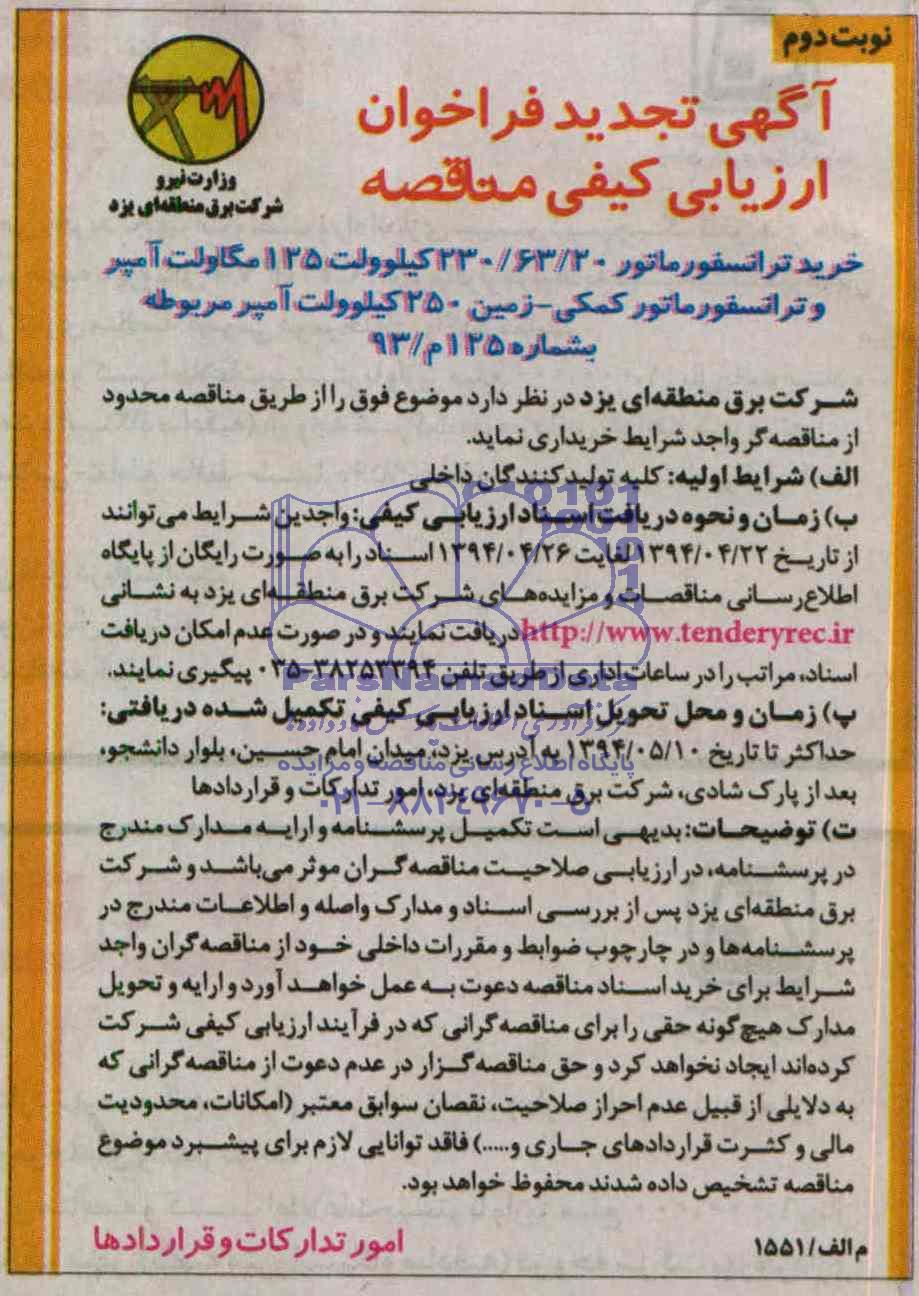 نوبت دوم
آگهی تجدید فراخوان
ارزیابی کیفی مناقصه
وزارت نیرو
شرکت برق منطقه‌ای یزد
خرید ترانسفورماتور ۲۳۰/۶۳/۲۰ کیلوولت ۱۲۵ مگاولت آمپر
و ترانسفورماتور کمکی-زمین ۲۵۰ کیلوولت آمپر مربوطه
بشماره ۱۲۵م/۹۳
شرکت برق منطقه‌ای یزد در نظر دارد موضوع فوق را از طریق مناقصه محدود
از مناقصه‌گر واجد شرایط خریداری نماید.
الف) شرایط اولیه: کلیه تولیدکنندگان داخلی
ب) زمان و نحوه دریافت اسناد ارزیابی کیفی: واجدین شرایط می‌توانند
از تاریخ ۱۳۹۴/۰۴/۲۲ لغایت ۱۳۹۴/۰۴/۲۶ اسناد را به صورت رایگان از پایگاه
اطلاع‌رسانی مناقصات و مزایده‌های شرکت برق منطقه‌ای یزد به نشانی
http://www.tenderyrec.ir دریافت نمایند و در صورت عدم امکان دریافت
اسناد، مراتب را در ساعات اداری از طریق تلفن ۳۸۲۵۳۳۹۴-۰۳۵ پیگیری نمایند.
پ) زمان و محل تحویل اسناد ارزیابی کیفی تکمیل شده دریافتی:
حداکثر تا تاریخ ۱۳۹۴/۰۵/۱۰ به آدرس یزد، میدان امام حسین، بلوار دانشجو،
بعد از پارک شادی، شرکت برق منطقه‌ای یزد، امور تدارکات و قراردادها
ت) توضیحات: بدیهی است تکمیل پرسشنامه و ارایه مدارک مندرج
در پرسشنامه، در ارزیابی صلاحیت مناقصه‌گران موثر می‌باشد و شرکت
برق منطقه‌ای یزد پس از بررسی اسناد و مدارک واصله و اطلاعات مندرج در
پرسشنامه‌ها و در چارچوب ضوابط و مقررات داخلی خود از مناقصه‌گران واجد
شرایط برای خرید اسناد مناقصه دعوت به عمل خواهد آورد و ارایه و تحویل
مدارک هیچ‌گونه حقی را برای مناقصه‌گرانی که در فرآیند ارزیابی کیفی شرکت
کرده‌اند ایجاد نخواهد کرد و حق مناقصه‌گزار در عدم دعوت از مناقصه‌گرانی که
به دلایلی از قبیل عدم احراز صلاحیت، نقصان سوابق معتبر (امکانات، محدودیت
مالی و کثرت قراردادهای جاری و.....) فاقد توانایی لازم برای پیشبرد موضوع
مناقصه تشخیص داده شدند محفوظ خواهد بود.
م الف/۱۵۵۱
امور تدارکات و قراردادها
ParsNamadData
پایگاه اطلاع رسانی مناقصه و مزایده
۰۲۱-۸۸۳۴۹۶۷۰-۵